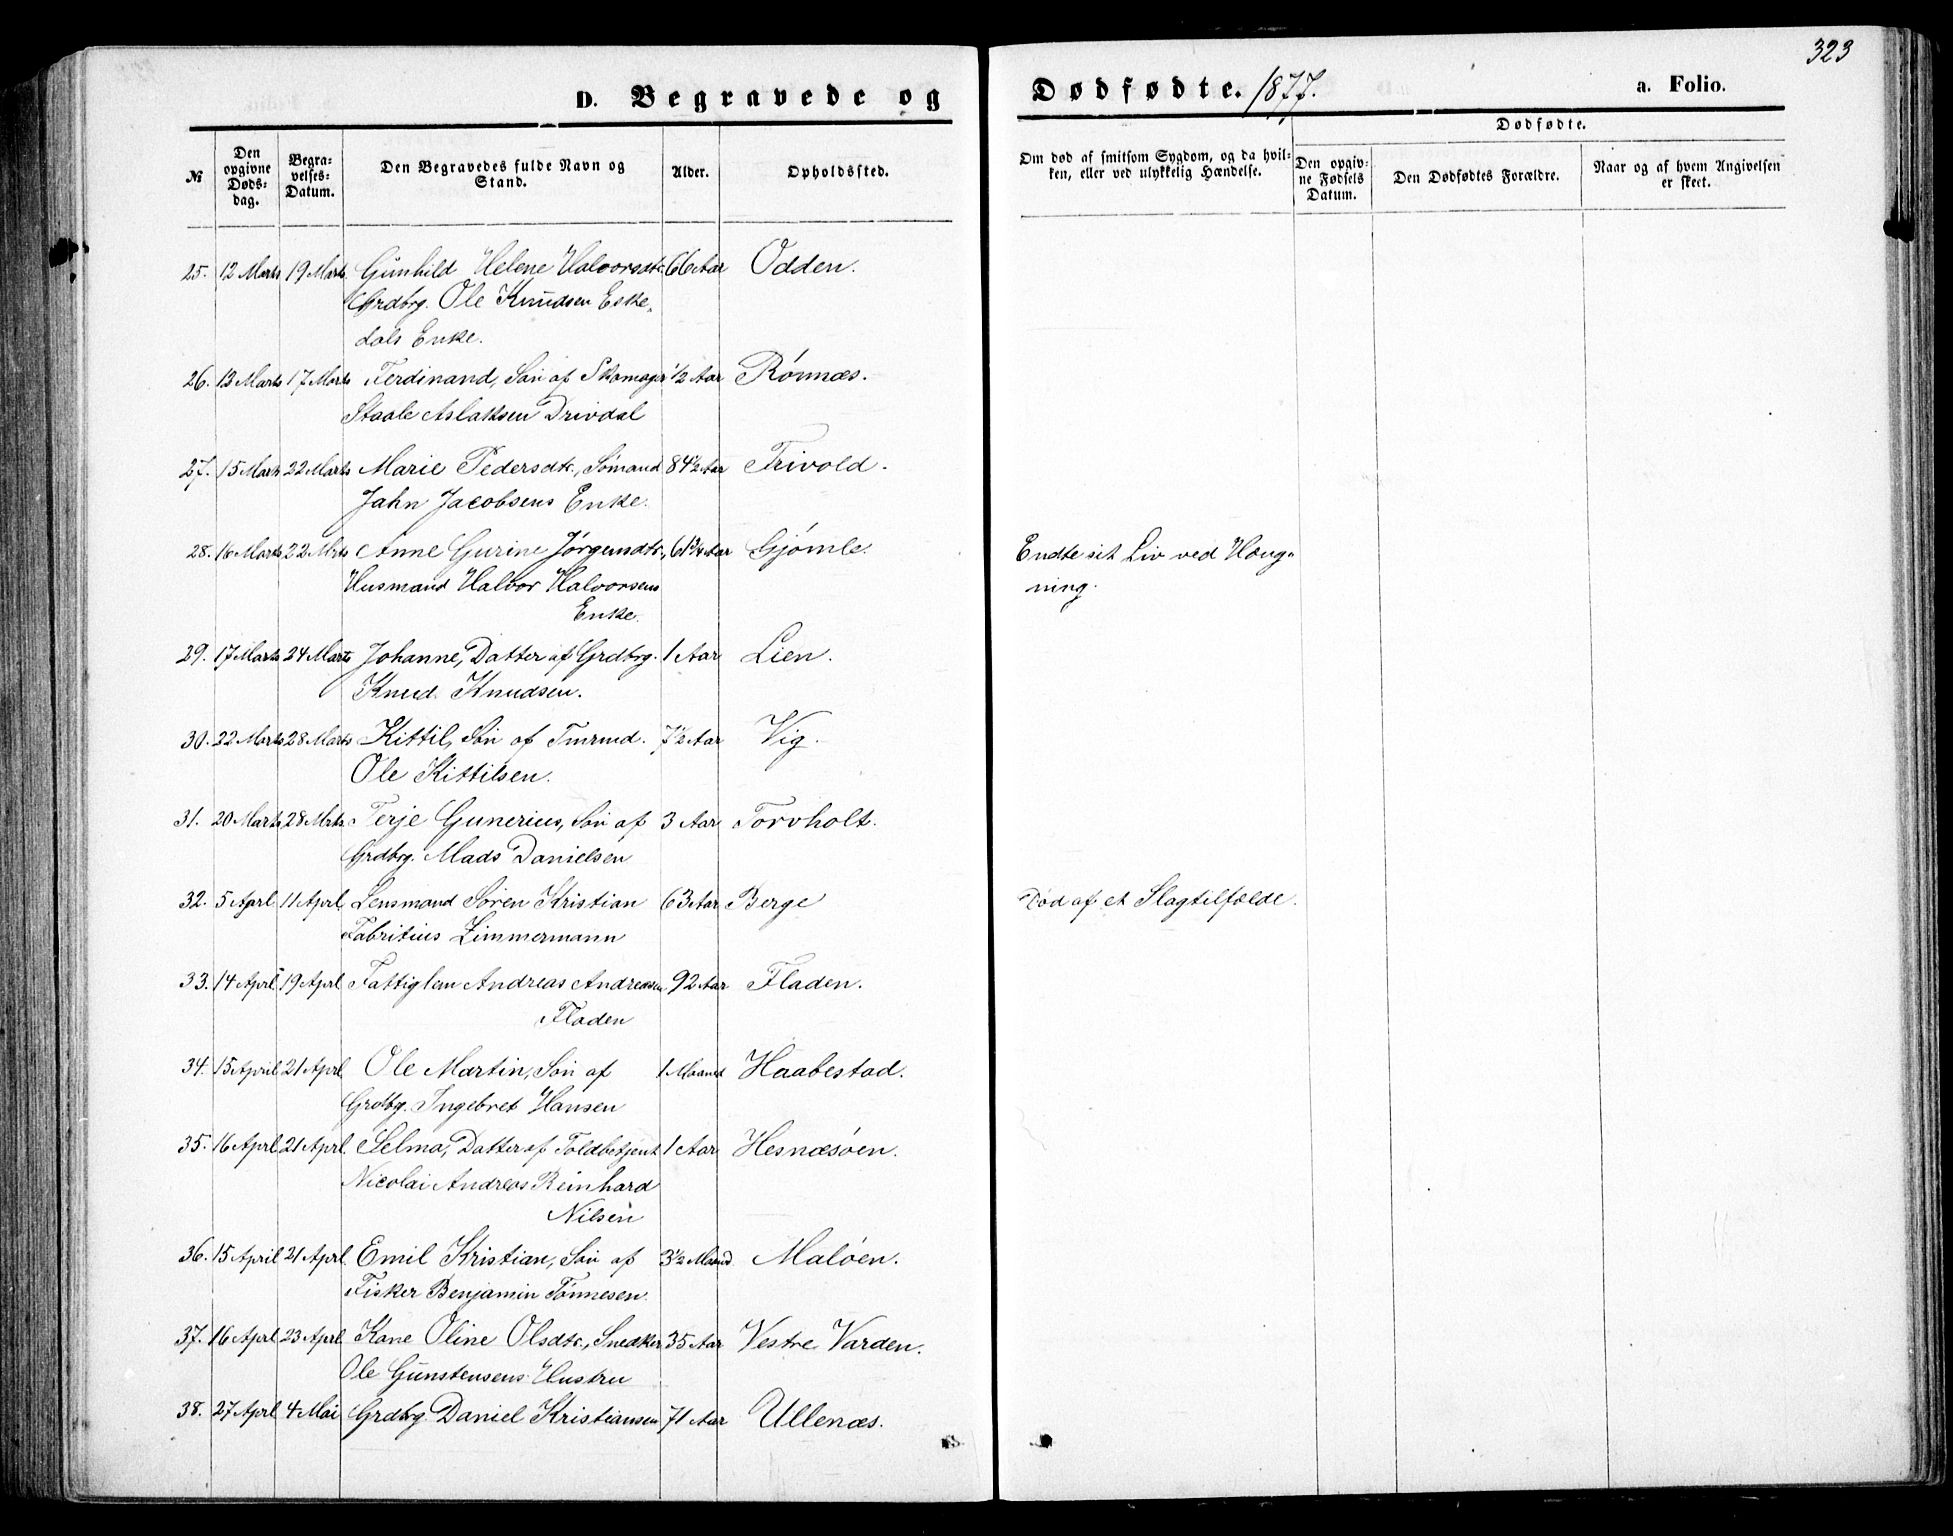 323
D. Begravede og Dødfødte. 1877. a. Folio.
№ Den opgivne Døds-dag. Begra-velses-Datum. Den Begravedes fulde Navn og Stand. Alder. Opholdsted. Om død af smitsom Sygdom, og da hvil-ken, eller ved ulykkelig Hændelse. Dødfødte. Den opgiv-ne Fødsels Datum. Den Dødfødtes Forældre. Naar og af hvem Angivelsen er skeet.
25. 12 Marts 19 Marts Gunhild Helene Halvorsdtr. 66 Aar Odden.
Grdbrg. Ole Knudsen Eske-
dals Enke.
26. 13 Marts 17 Marts Ferdinand, Søn af Skomager 1/2 Aar Rønnæs.
Staale Aslaksen Drivdal
27. 15 Marts 22 Marts Marie Pedersdtr., Sømand 84 1/2 Aar Trivold.
Jahn Jacobsens Enke.
28. 16 Marts 22 Mrts Anne Gurine Jørgensdtr., 61 3/4 Aar Gjømle. Endte sit Liv ved Hæng-
Husmand Halvor Halvorsens ning.
Enke.
29. 17 Marts 24 Marts Johanne, Datter af Grdbrg. 1 Aar Lien.
Knud Knudsen.
30. 22 Marts 28 Marts Kittil, Søn af Tmrmd. 7 1/2 Aar Vig.
Ole Kittilsen.
31. 20 Marts 28 Mrts. Terje Gunerius, Søn af 3 Aar Torvholt.
Grdbrg. Mads Danielsen
32. 5 Aprl 11 Aprl. Lensmand Søren Kristian 63 Aar Berge Død af et Slagtilfælde.
Fabritius Zimmermann
33. 14 Aprl 19 Aprl Fattiglem Andreas Andreassen 92 Aar Fladen.
Fladen
34. 15 April 21 Aprl. Ole Martin, Søn af 1 Maaned Haabestad.
Grdbg. Ingebret Hansen
35. 16 Aprl 21 Aprl. Selma, Datter af Toldbetjent 1 Aar Hesnæsøen.
Nicolai Andreas Reinhard
Nilsen
36. 15 April 21 Aprl. Emil Kristian, Søn af 3 1/2 Maand Maløen.
Fisker Benjamin Tønnesen.
37. 16 Aprl 23 Aprl. Kone Oline Olsdtr., Snedker 35 Aar Vestre Varden.
Ole Gunstensens Hustru
38. 27 Aprl 4 Mai Grdbrg Daniel Kristiansen 71 Aar Ullenæs.